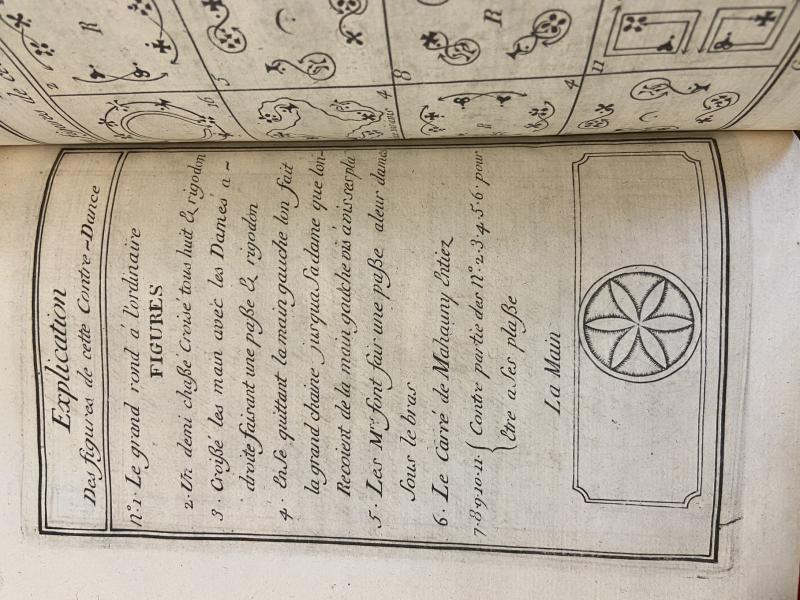 Explication
Des figures de cette Contre-Dance
n.º 1. Le grand rond a l'ordinaire
FIGURES
2. Un demi chaßé Croisé tous huit & rigodon
3. Croißé les main avec les Dames a -
droite faisant une paße & rigodon
4. EnSe quittant la main gauche lon fait
la grand chaine jusqua Sa dame que lon-
Recoient de la main gauche vis à vis ses pla
5. Les M.rs font fair une paße aleur dames
Sous le bras
6. Le Carré de Mahauny Entiez
7.8.9.10.11. { Contre partie des N.º 2.3.4.5.6. pour
Etre a Ses plaße
La Main